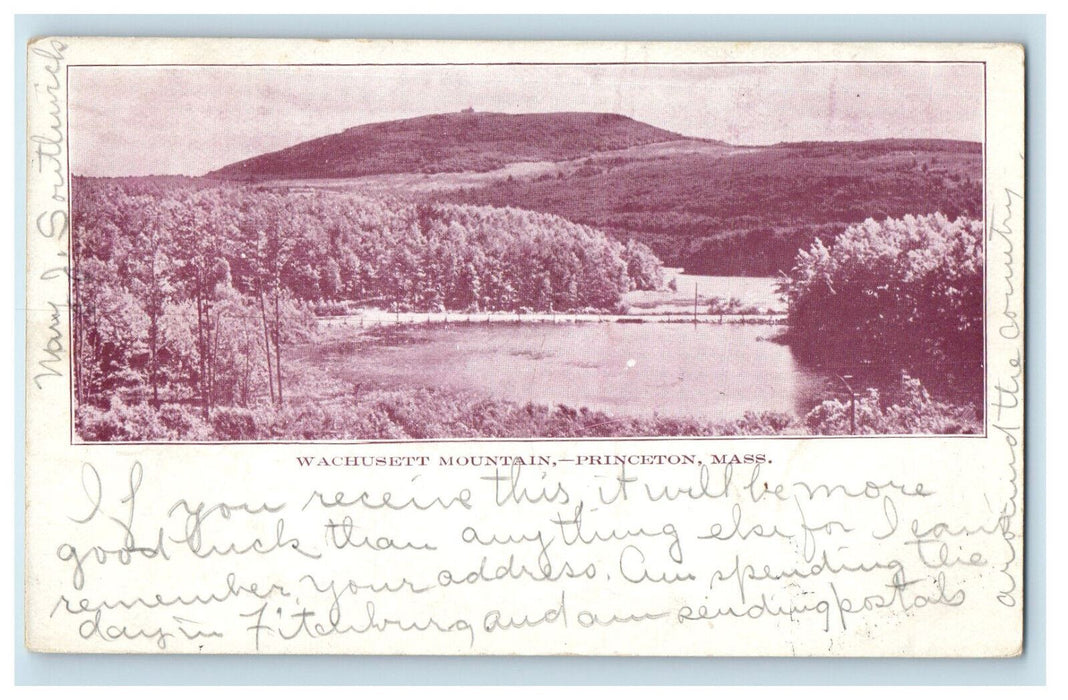 WACHUSETT MOUNTAIN,—PRINCETON, MASS.
If you receive this it will be more
good luck than anything else for I can't
remember your address. Am spending the
day in Fitchburg and am sending postals
around the country.
Mary J. Southwick